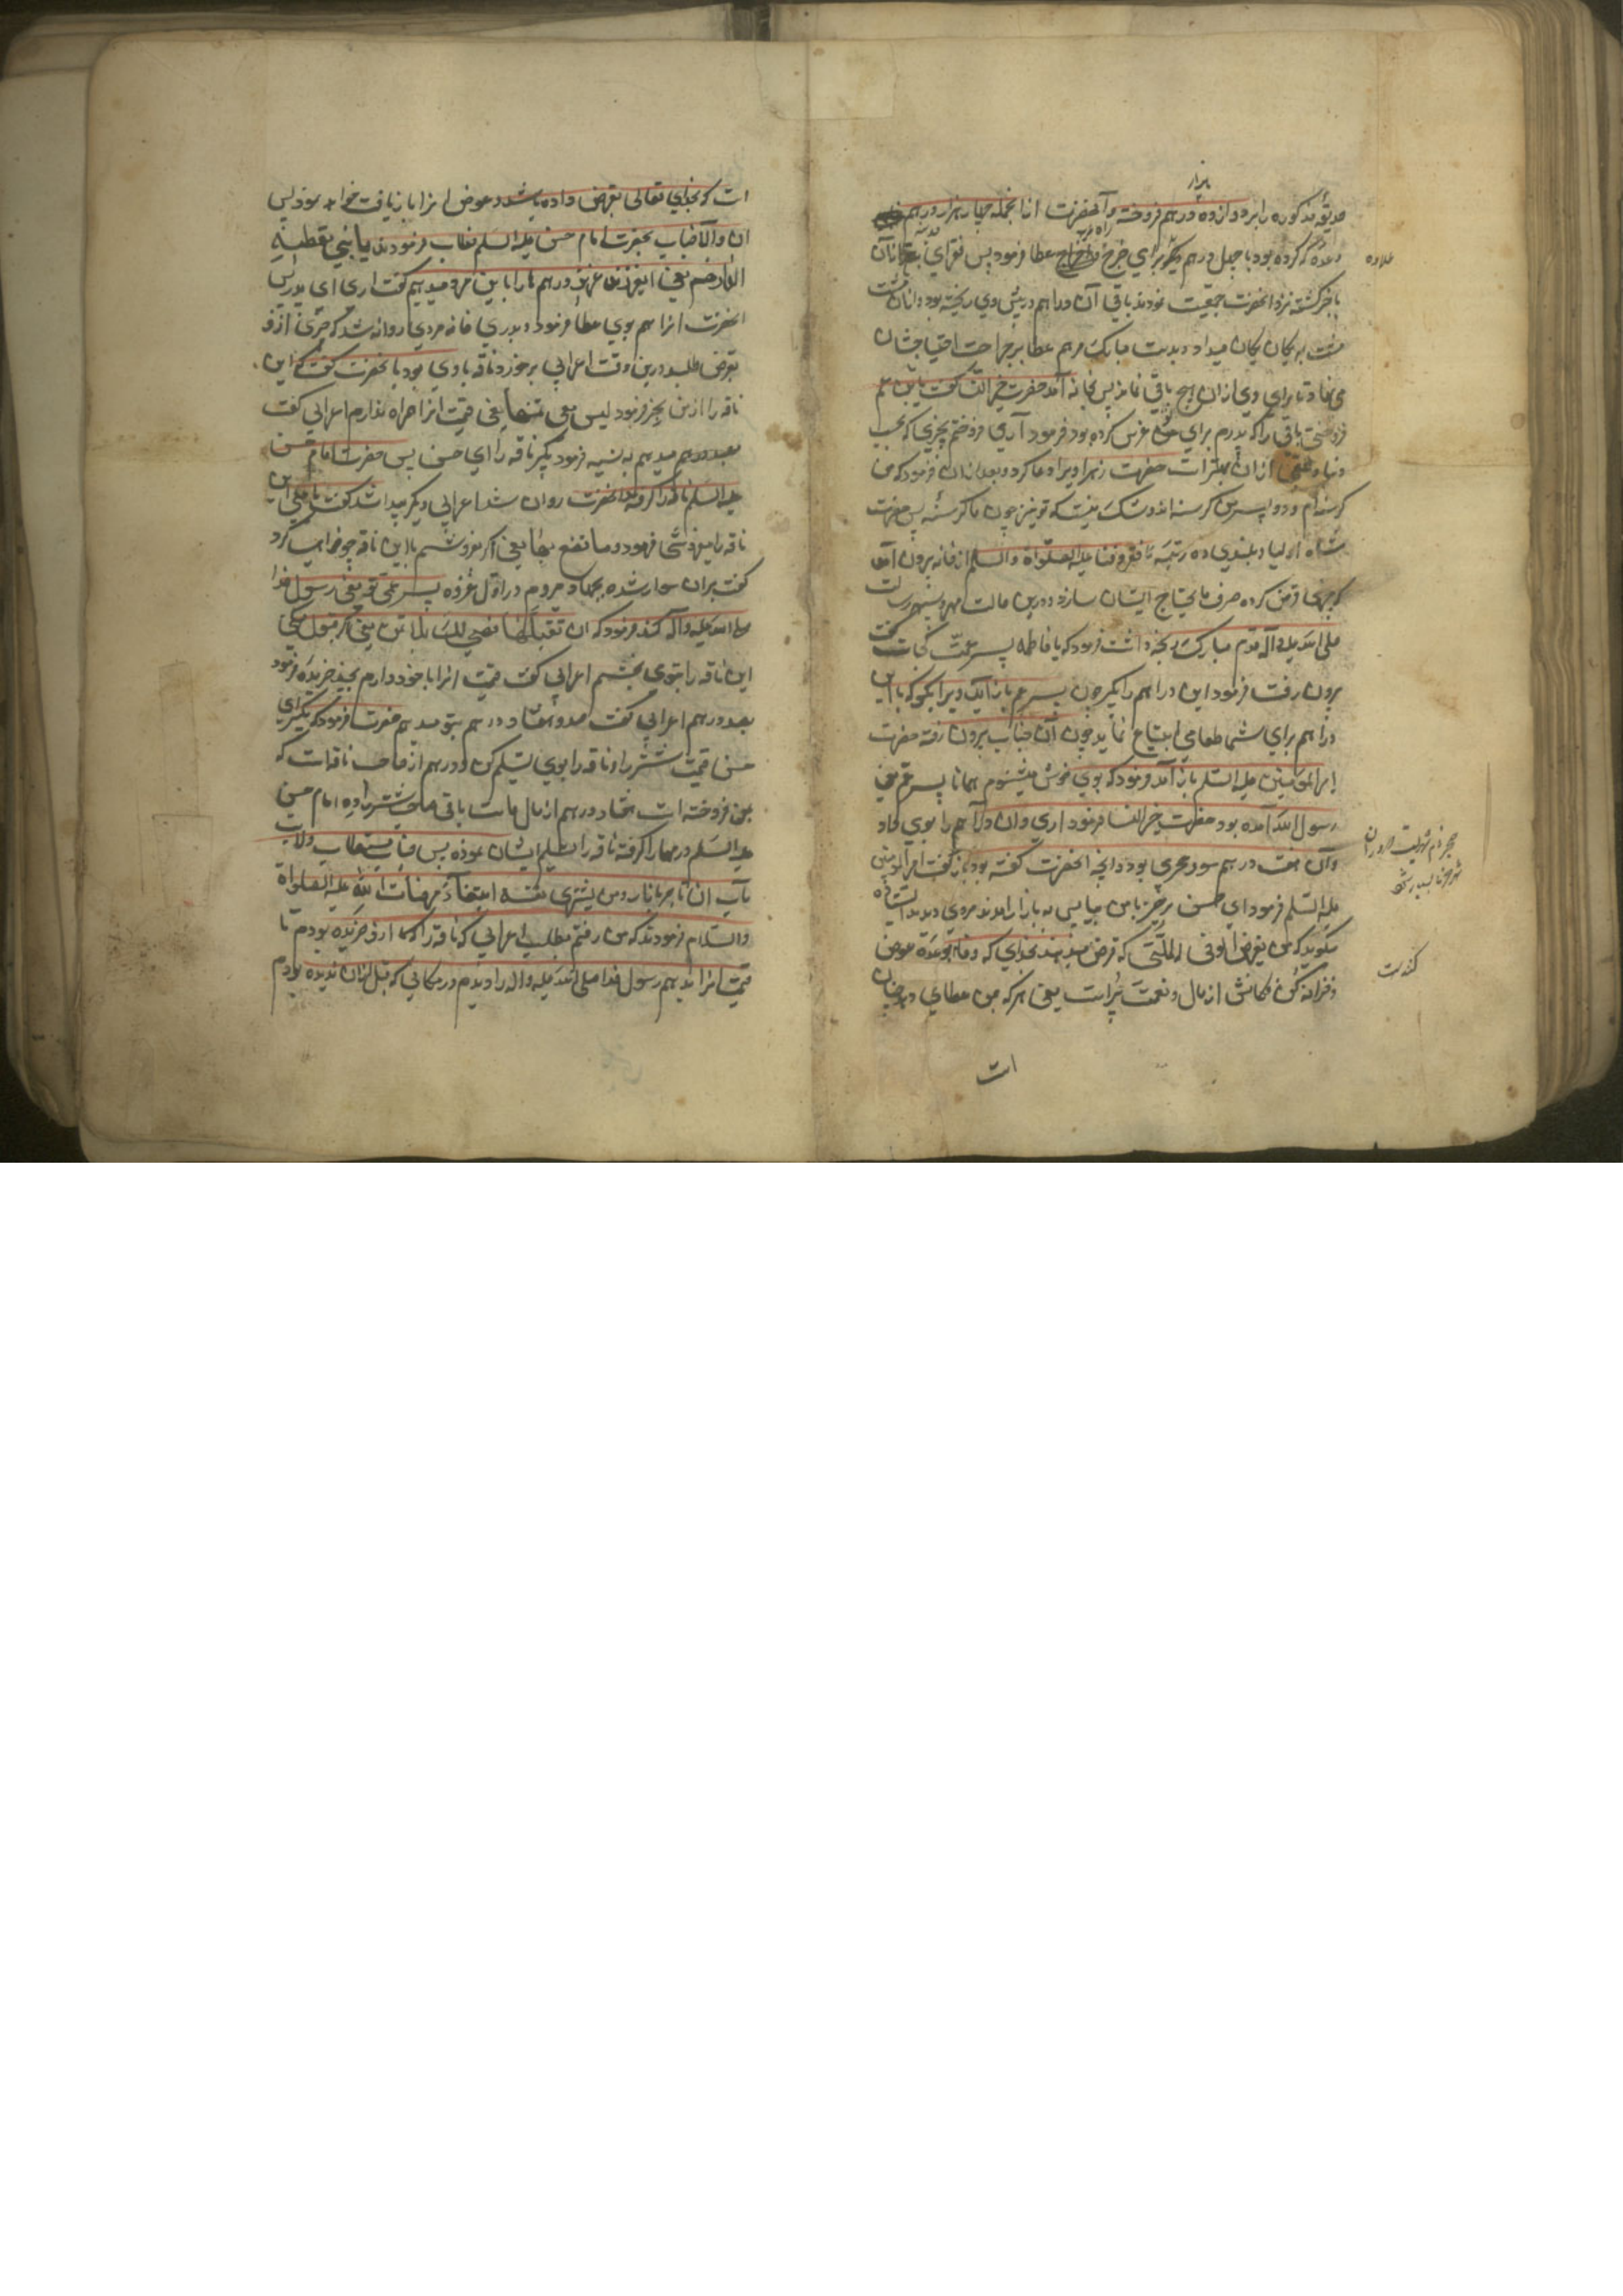 بهزار
حدیقه مذکوره را بدوازده درهم فروخته و آنحضرت از انجمله چهار هزار درهم
وعده کرده بود با چهل درهم دیگر برای خرج راه عطا فرمود پس فقرای
علاوه
باخبر گشته نزد انحضرت جمعیت نمودند باقی آن دراهم در پیش وی ریخته بود و ازان مشت
مشت به یکان یکان میداد و بدست مبارک مرهم عطا بر جراحت احتیاجشان
می نهاد تا برای وی ازان هیچ باقی نماند پس بخانه آمد حضرت خیر النسا گفت یا بن عم
فروختی باغی را که پدرم برای تو غرس کرده بود فرمود آری فروختم بچیزی که بحسب
دنیا و عقبی ازان بهتر است حضرت زهرا ویرا دعا کرد و بعد ازان فرمود که من
گرسنه ام و دو پسر من گرسنه اند و شک نیست که تو نیز چون ما گرسنه پس حضرت
شاه اولیا و بلندی ده رتبه فقر و فنا علیه الصلواة والسلم از خانه برون آمد
که چیزی قرض کرده صرف مایحتاج ایشان سازد و درین حالت مهر سپهر رسالت
صلی الله علیه و آله قدم مبارک رنجه داشت فرمود که یا فاطمه پسر عمت کجاست گفت
برون رفت فرمود این دراهم را بگیر چون پسر عم باز اید ویرا بگو که با این
دراهم برای شما طعامی ابتیاع نماید چون آن جناب برون رفته حضرت
امیر المومنین علیه السلم باز آمد و فرمود که بوی خوش میشنوم همانا پسر عم یعنی
رسول الله آمده بود حضرت خیر النسا فرمود اری و ان دراهم را بوی داد
وآن هفت درهم سود هجری بود و انچه انحضرت گفته بود باز گفت امیر المومنین
علیه السلم فرمود ای حسن برخیز با من بیا پس به بازار امدند مردی دیدند ایستاده
میگوید که من یقرض الوفی الملی که قرض میدهد بخدای که وفا بوعده عوض
کننده است
و خزانه کن فکانش از مال و نعمت پراست یعنی هر که بمن عطای دهد چنان
است
است که بخدای تعالی بقرض داده باشد و عوض انرا باز یافت خواهد نمود پس
ان والا جناب بحضرت امام حسن علیه السلم خطاب فرمودند یا بنی نعطیه
الدراهم یعنی ای فرزند عزیز درهم ها را باین مرد میدهیم گفت اری ای پدر پس
انحضرت انرا هم بوی عطا فرمود و بدر خانه مردی روانه شد که چیزی ازو
بقرض طلبد درین وقت اعرابی برخورد ناقه با وی بود با نحضرت گفت که این
ناقه را از من بخر فرمود لیس معی ثمنها یعنی قیمت انرا همراه ندارم اعرابی گفت
بصد درهم میدهم به نسیه فرمود بگیر ناقه را ای حسن پس حضرت امام حسن
علیه السلم ناقه را گرفته انحضرت روان شد اعرابی دیگر پیدا شد گفت یا علی این
ناقه را میفروشی فرمود و ما تصنع بها یعنی اگر بفروشم با این ناقه چه خواهی کرد
گفت بران سوار شده بجهاد میروم در اول غزوه که پسر عمت یعنی رسول خدا
صلی الله علیه و آله کند فرمود که ان تقبلها فهی لک بلا ثمن یعنی اگر قبول میکنی
این ناقه را بتوی بخشم اعرابی گفت قیمت انرا با خود دارم بچند خریده فرمود
بصد درهم اعرابی گفت صد و هفتاد درهم بتو میدهم حضرت فرمود که بگیر ای
حسن قیمت شتر را و ناقه را بوی تسلیم کن صد درهم از صاحب ناقه است که
بمن فروخته است و هفتاد درهم از مال ماست باقی
علیه السلم درهمها را گرفته ناقه را تسلیم ایشان نموده پس جناب مستطاب ولایت
مآب ان تاجر بازار ومن یشتری نفسه ابتغاء مرضات الله علیه الصلواة
والسلام فرمودند که من رفتم بطلب اعرابی که ناقه را ازو خریده بودم تا
قیمت انرا بدهم رسول خدا صلی الله علیه و اله را دیدم در مکانی که قبل ازان ندیده بودم